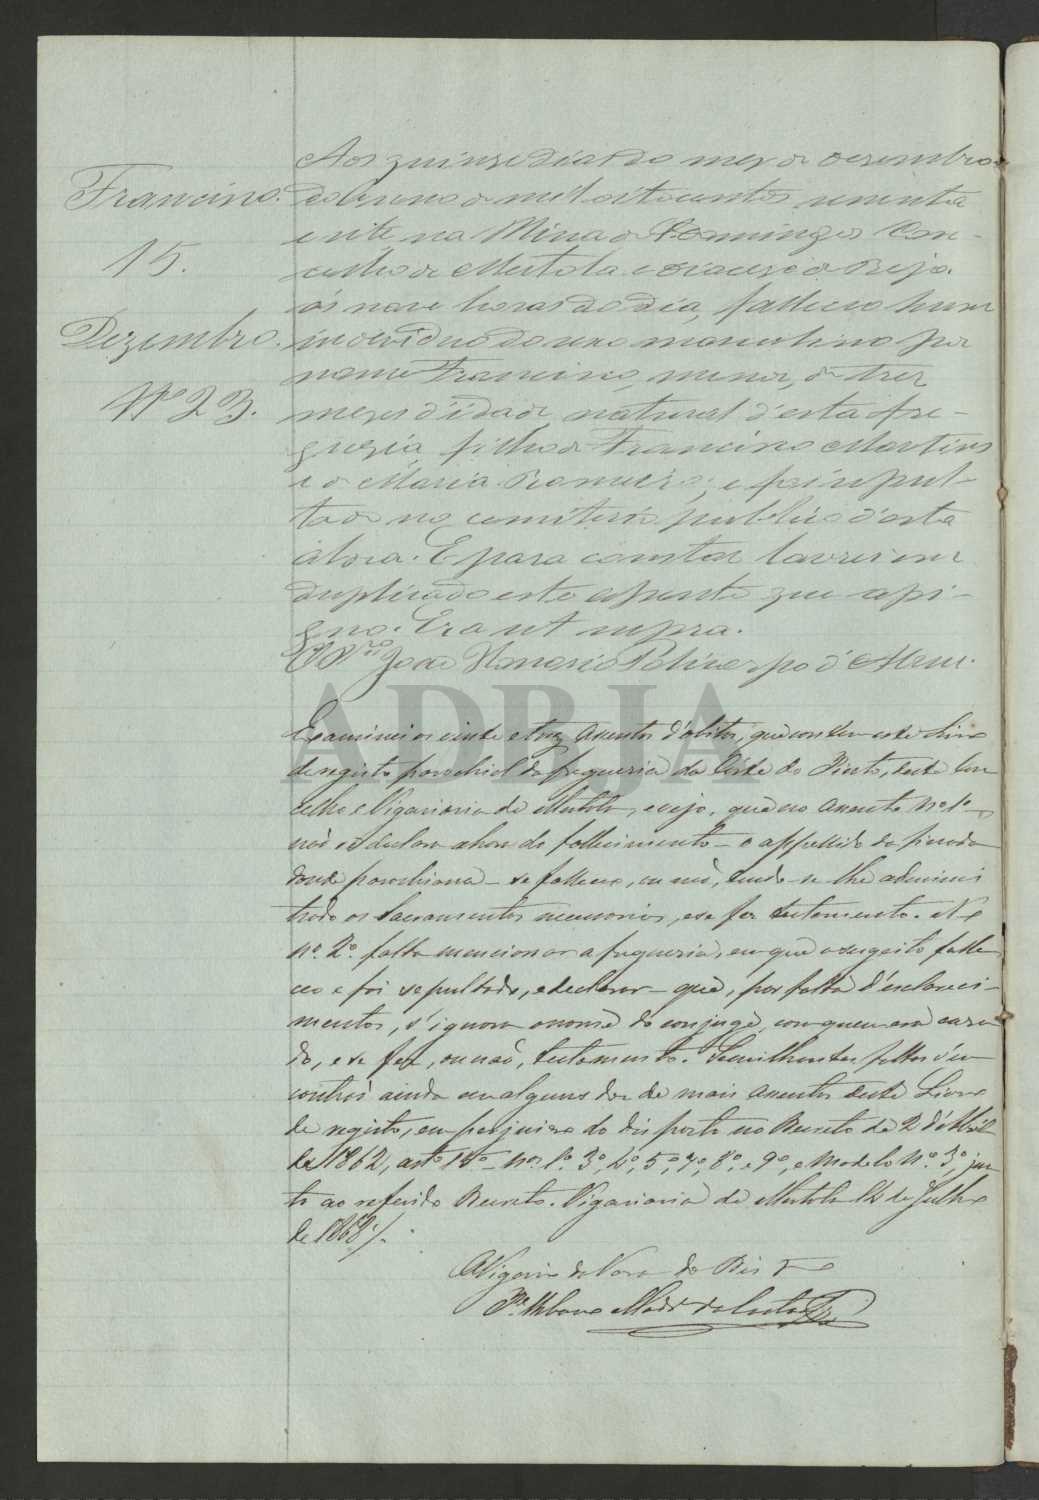 Francisco.
15.
Dezembro.
Nº 23.
Aos quinze dias do mez de Dezembro
do Anno de mil oitocentos sessenta
e sete, na Mina de S. Domingos Con-
celho de Mertola e diocese de Beja
ás nove horas do dia, falleceu hum
individuo do sexo masculino por
nome Francisco, menor, de trez
mezes d'idade, natural d'esta fre-
guezia, filho de Francisco Martins
e de Maria Romeira; e foi sepul-
tado no cemiterio publico d'esta
aldea. E para constar lavrei em
duplicado este assento que assi-
gno. Era ut supra.
O Pro José
ADBJA
Examinei os vinte e trez assentos d'obitos, que contem este Livro
de registo parochial da freguezia da Corte do Pinto, deste Con
celho e Vigariaria de Mertola, e vejo, que no assento nº 1º
não se declara a hora do fallecimento - o appellido da finada
donde parochiana - se falleceu, ou não, tendo-se lhe adminis
trado os Sacramentos necessarios, e se fez testamento. No
nº 2º falta mencionar a freguezia, em que o sugeito falle
ceo e foi sepultado, e declarar - que, por falta d'esclareci-
mentos, s'ignora o nome do conjuge, com quem era casa
do, e se fez, ou não, testamento. Semilhantes faltas s'en
contrão ainda em alguns dos de mais assentos deste Livro
de registo, em prejuizo do disposto no Decreto de 2 d'Abril
de 1862, arto 14º nos 1º 3º, 4º, 5º, 7º, 8º, e 9º, e Modelo Nº 3º, jun
to ao referido Decreto. Vigariaria de Mertola 14 de Julho
de 1868./.
O Vigario da Vara
Pe. Urbano